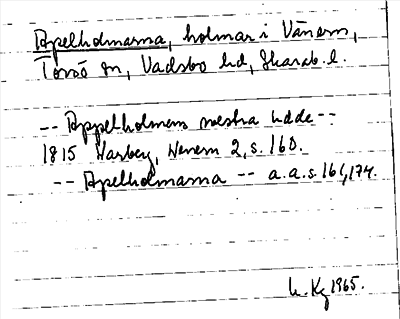 Apelholmarna, holmar i Vänern,
Torsö sn, Vadsbo hd, Skarab. l.
-- Appelholmens westra udde --
1815 Warberg, Wenern 2, s. 160.
-- Apelholmarna -- a.a.s. 161, 174.
1965.